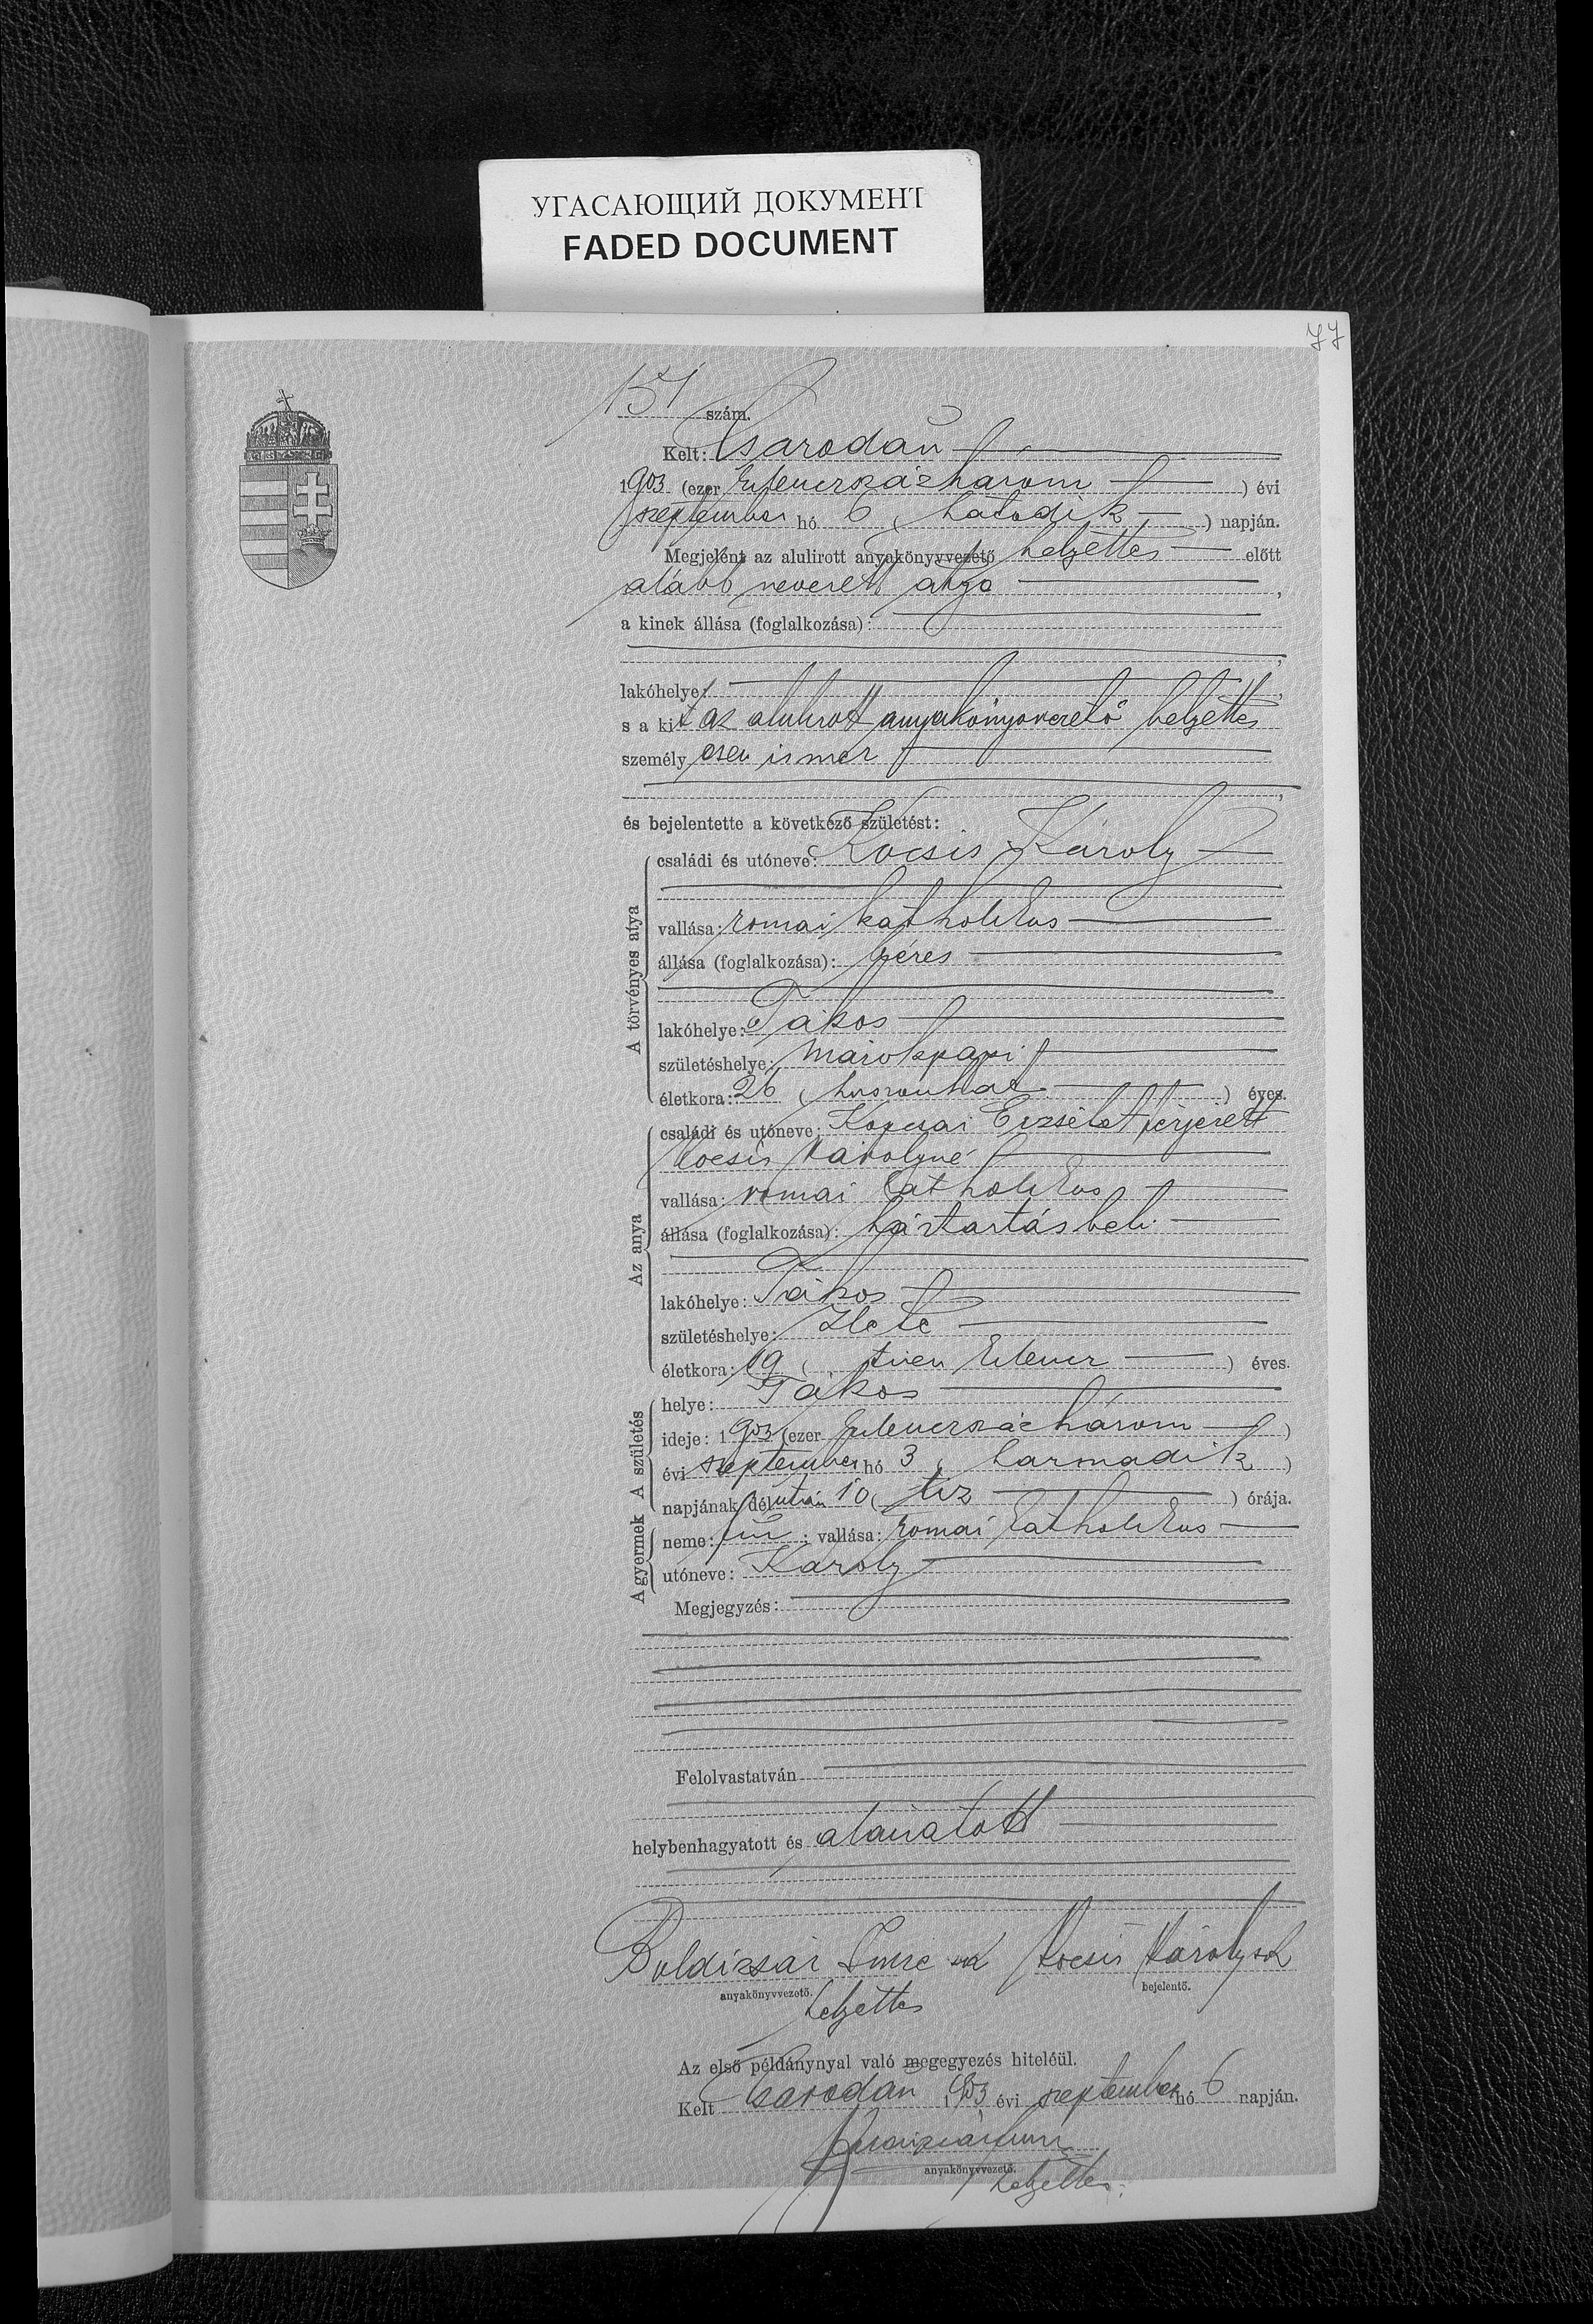 УГАСАЮЩИЙ ДОКУМЕНТ
FADED DOCUMENT
77
151 szám.
Kelt: Csarodán
1903 (ezer kilenczszázhárom) évi
szeptember hó 6 (hatodik) napján.
Megjelent az alulirott anyakönyvvezető helyettes előtt
alább nevezett atya,
a kinek állása (foglalkozása):
lakóhelye:
s a kit az alulirott anyakönyvvezető helyettes
személyesen ismer
és bejelentette a következő születést:
A törvényes atya
családi és utóneve: Kocsis Károly
vallása: romai katholikus
állása (foglalkozása): béres
lakóhelye: Tákos
születéshelye: Márokpapi
életkora: 26 (huszonhat) éves.
Az anya
családi és utóneve: Kopcsai Erzsébet férjezett
Kocsis Károlyné
vallása: romai katholikus
állása (foglalkozása): háztartásbeli
lakóhelye: Tákos
születéshelye: Hete
életkora: 19 (tizen kilencz) éves.
A születés
helye: Tákos
ideje: 1903 (ezer kilenczszázhárom)
évi szeptember hó 3 (harmadik)
napjának délután 10 (tiz) órája.
A gyermek
neme: fiú; vallása: romai katholikus
utóneve: Károly
Megjegyzés:
Felolvastatván
helybenhagyatott és aláiratott
Boldizsár Imre sk Kocsis Károly sk
anyakönyvvezető. bejelentő.
helyettes
Az első példánynyal való megegyezés hiteléül.
Kelt Csarodán 1903 évi szeptember hó 6 napján.
Boldizsár Imre
anyakönyvvezető.
helyettes.